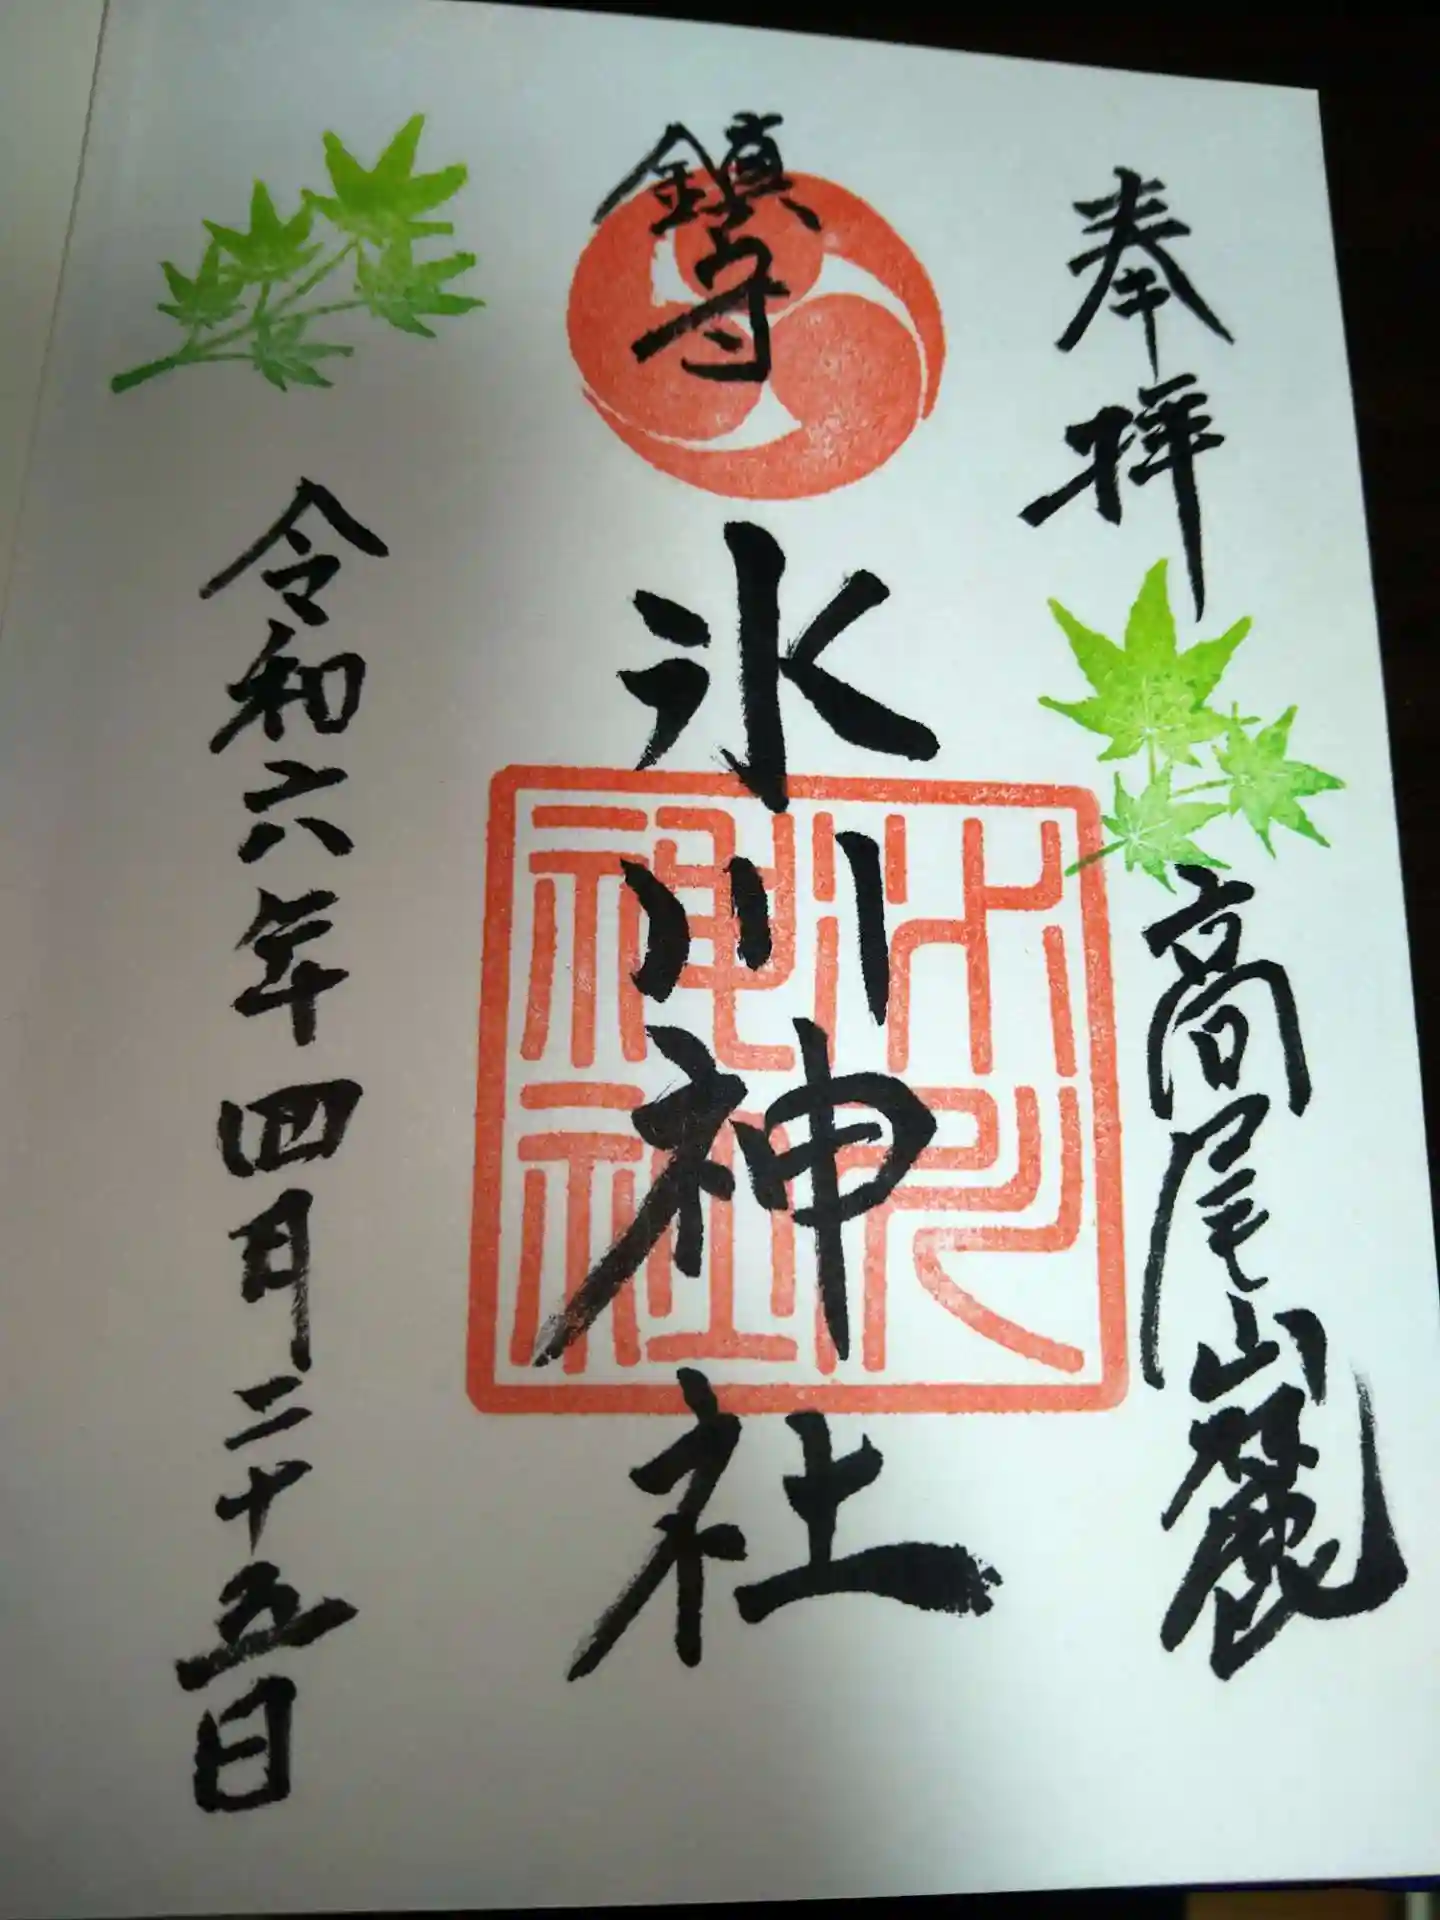 奉拝
高尾山麓
鎮守
氷川神社
氷川神社
令和六年四月二十五日